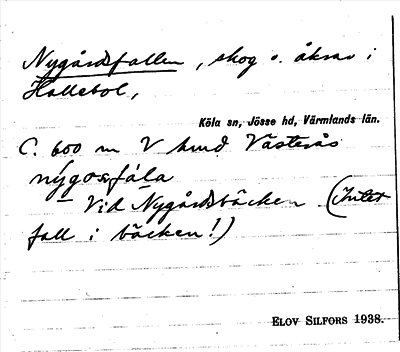 Nygårdsfallen, skog o. åkrar i
Hallebol,
Köla sn, Jösse hd, Värmlands län.
C. 600 m V huvud Västerås
nýgoṣfála
Vid Nygårdsbäcken (Intet
fall i bäcken!)
ELOV SILFORS 1938.